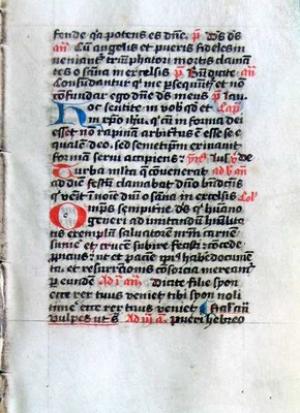 fende qa potens es dñe. p̃. Ds ds
añ. Cũ angelis et pueris fideles in
veniamr triũphatori mortis clamãt
tes osãna in excelsis p̃. Bñdicite añ
Confundantur q me persequũtr et nõ
confundar ego dñe ds meus p̃. Lau.
Hoc sentite in vob qd et Cap
in xpõ ihu. q cũ in forma dei
esset nõ rapinam arbitratus ẽ esse se e
qualem deo. sed semetipm exinanit
formã servi accipiens
Turba mlta q convenerat ad b añ
ad diẽ festũ clamabat dño bñdictus
q venit in noĩe dñi osãna in excelsis Col
Omps sempiterne ds q huano
generi ad imitandũ hũilitatis
exemplũ salvatorẽ nrm carnẽ
sumere et crucẽ subire fecisti cõcede
propicius ut et pacie ipis habe docume
ta. et resurrectionis cõsorcia mereamr
p eundẽ Ad i añ. Dicite filie syon
ecce rex tuus veniet tibi syon noli
timere ecce rex tuus veniet
vulpes ut s̃ Ad iii a. pueri hebreo